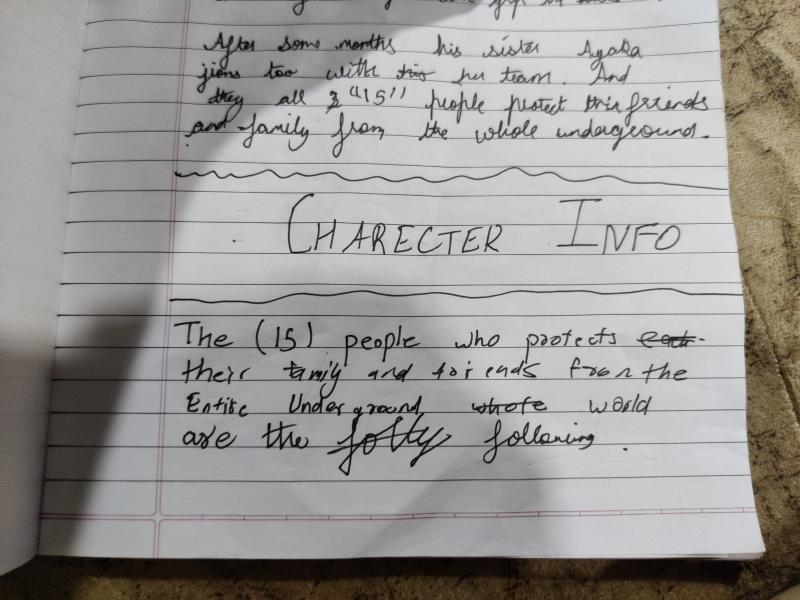 After some months his sister Ayaka
jions too with his her team. And
they all 3 "15" people protect this friends
and family from the whole underground.
CHARECTER INFO
The (15) people who protects each
their family and friends from the
Entire Underground whole world
are the following.